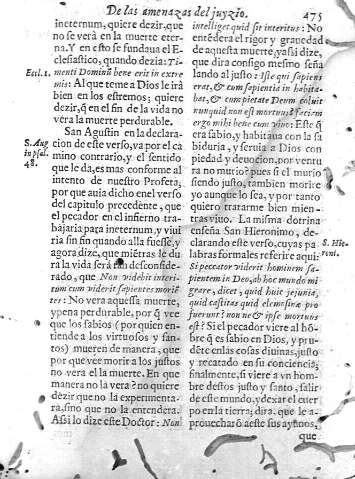 De las amenazas del juyzio.
475
ineternum, quiere dezir, que
no se verà en la muerte eter-
na. Y en esto se fundaua el Ec-
clesastico, quando dezia: Ti-
menti Dominũ bene erit in extre
mis: Al que teme a Dios le irà
bien en los estremos; quiere
dezir, q̃ en el fin de la vida no
vera la muerte perdurable.
San Agustin en la declara-
cion de este verso, va por el ca
mino contrario, y el sentido
que le da, es mas conforme al
intento de nuestro Profeta,
por que auia dicho en el verso
del capitulo precedente, que
el pecador en el infierno tra-
bajaria paga ineternum, y viui
ria sin fin quando alla fuesse, y
agora dize, que miẽtras le du
ra la vida serà tan desconside-
rado, que Non videbit interi-
tum cum viderit sapientes morie
tes: No vera aquessa muerte,
y pena perdurable, por q̃ vee
que los sabios (por quien en-
tiende a los virtuosos y san-
tos) mueren de manera, que
por que vee morir a los justos
no vera el la muerte. En que
manera no la vera? no quiere
dezir que no la experimenta-
ra, sino que no la entendera.
Assi lo dize este Doctor: Non
Eccl. 1.
S. Aug.
in psal.
48.
intelliget quid sit interitus: No
entẽdera el rigor y grauedad
de aquesta muerte, y assi dize,
que dira consigo mesmo seña
lando al justo: Iste qui sapiens
erat, & cum sapientia in habita-
bat, & cum pietate Deum coluit
nunquid non est mortuus? faciam
ergo mihi bene cum viuo: Este q̃
era sabio, y habitaua con la sa
biduria, y seruia a Dios con
piedad y deuocion, por ventu
ra no murio? pues si el murio
siendo justo, tambien morire
yo aunque lo sea, y por tanto
quiero tratarme bien mien-
tras viuo. La misma dotrina
enseña San Hieronimo, de-
clarando este verso, cuyas pa
labras formales referire aqui:
Si peccator viderit hominem sa-
pientem in Deo, ab hoc mundo mi
grare, dicet, quid huic jejunia,
quid castitas quid elemosina pro
fuerunt? non ne & ipse mortuus
est? Si el pecador viere al hõ-
bre q̃ es sabio en Dios, y pru-
dẽte en las cosas diuinas, justo
y recatado en su conciencia;
finalmente, si viere a vn hom-
bre destos justo y santo, salir
de este mundo, y dexar el cuer
po en la tierra; dira. que le a-
prouecharõ a este sus ayunos,
que
S. Hie-
roni.